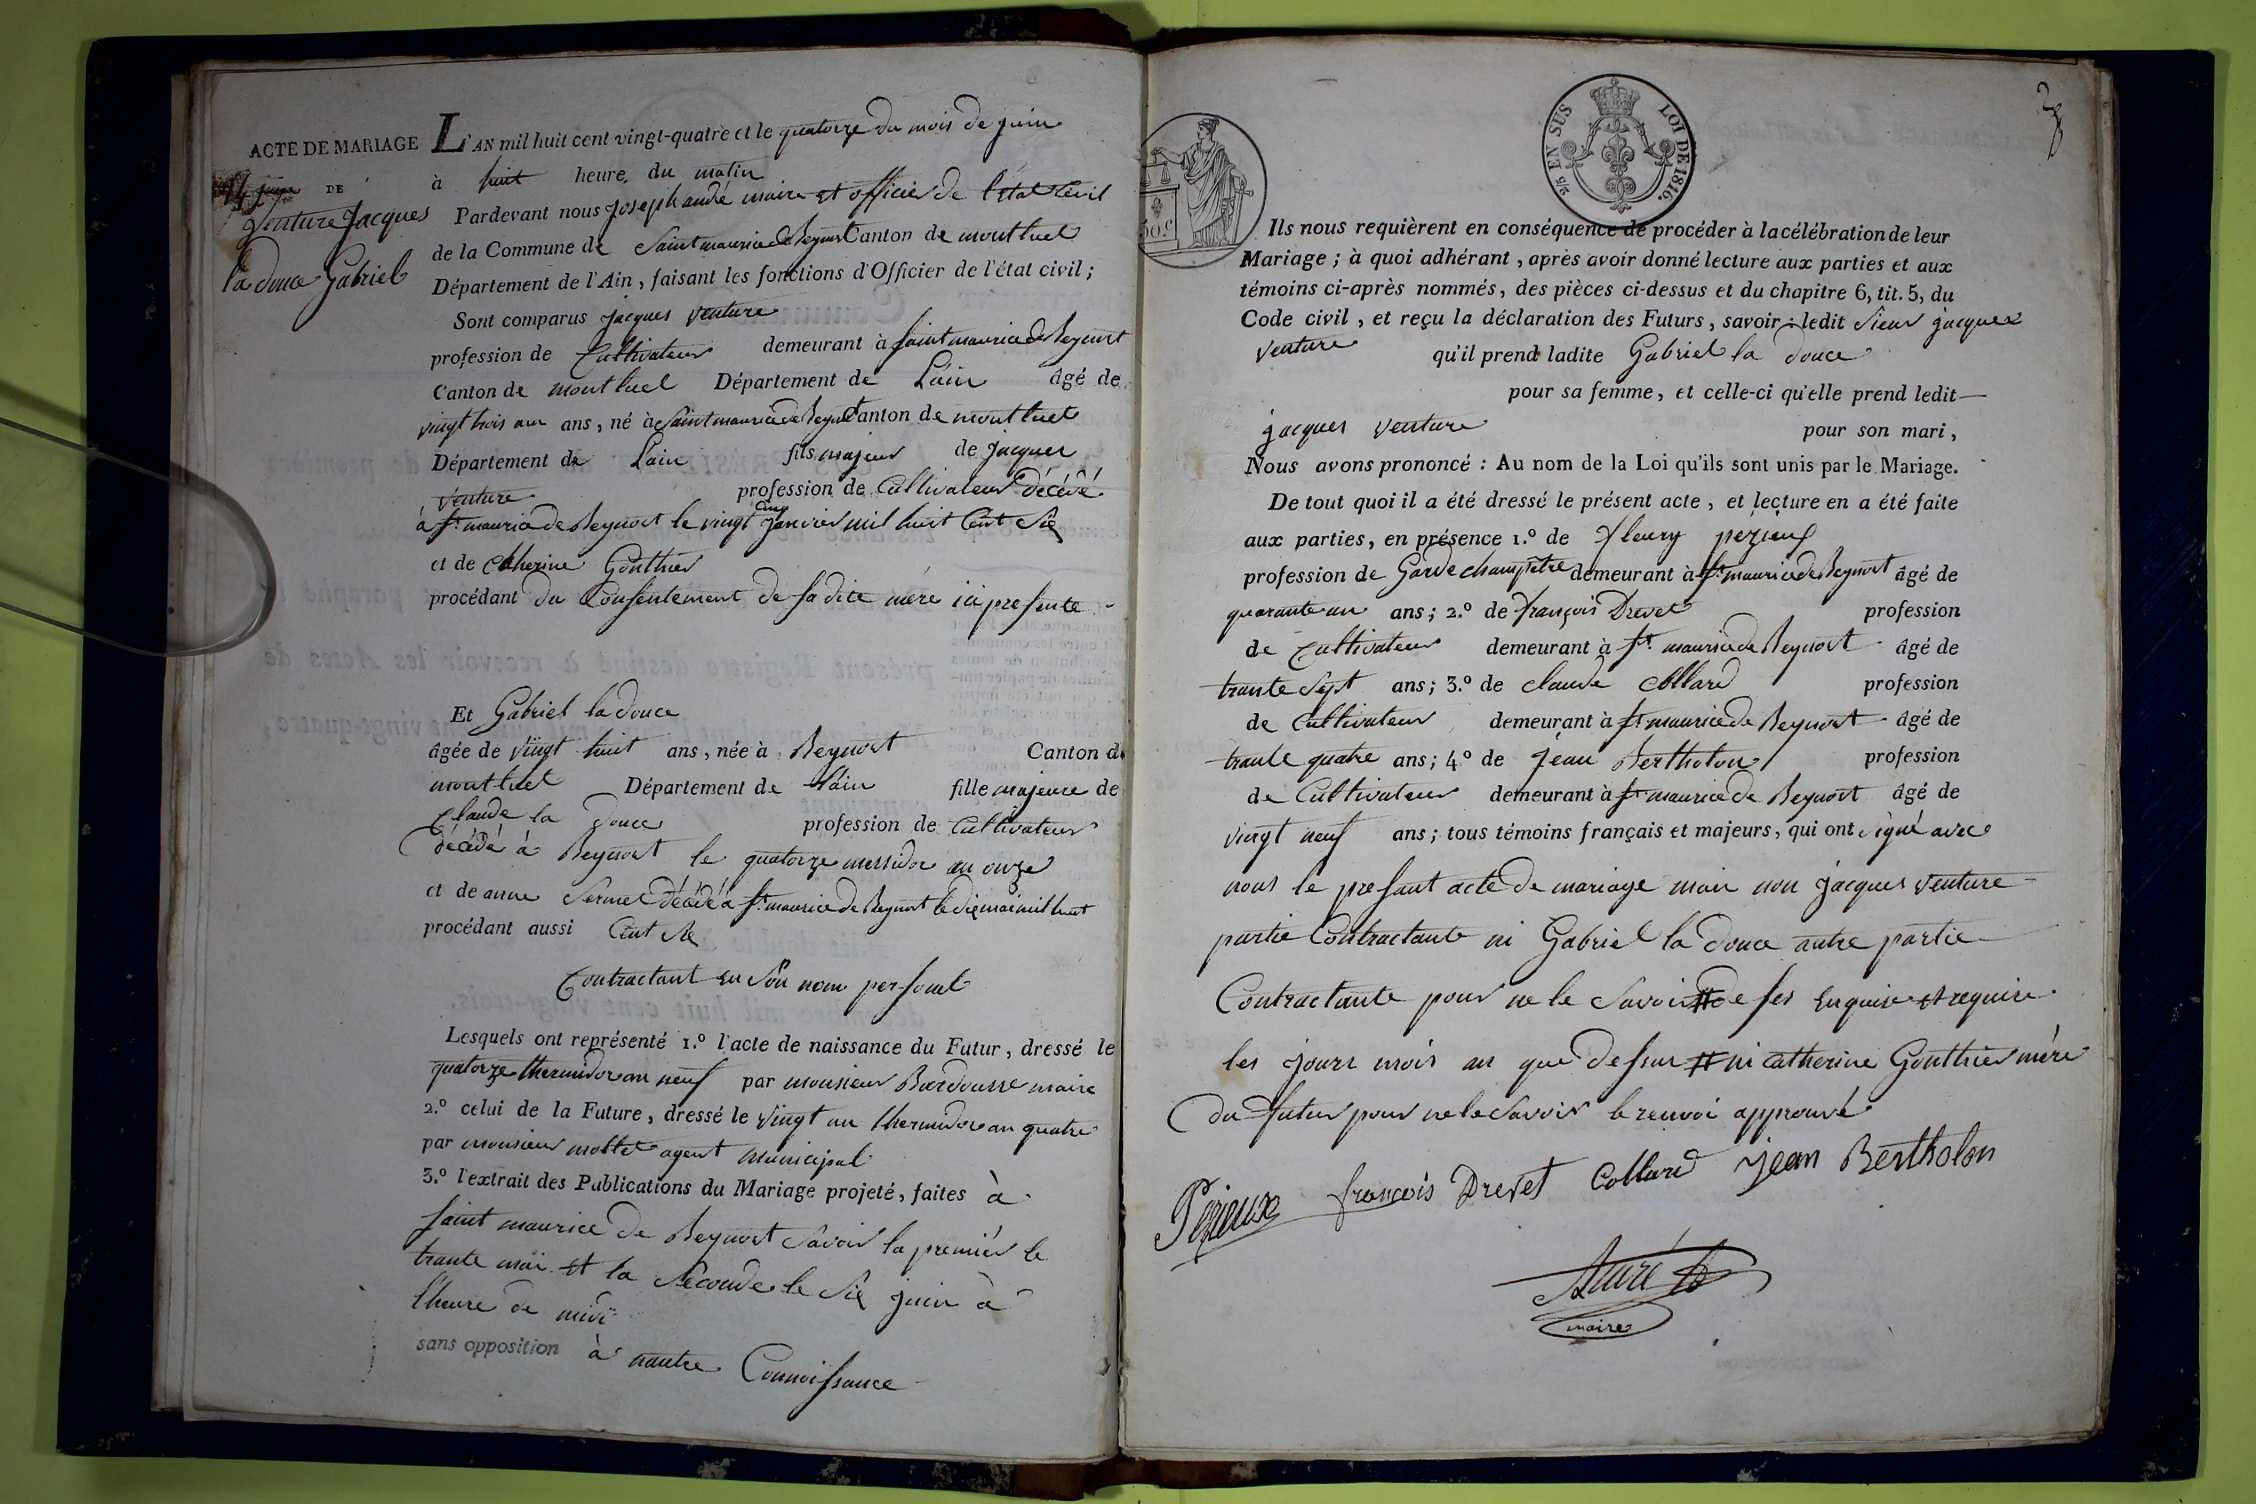 ACTE DE MARIAGE
14 juin DE
Venture Jacques
la douce Gabriel
L'AN mil huit cent vingt-quatre et le quatorze du mois de juin
à huit heure du matin
Pardevant nous Joseph andré maire et officier de l'état Civil
de la Commune de Saint maurice de Beynost Canton de montluel
Département de l'Ain, faisant les fonctions d'Officier de l'état civil;
Sont comparus jacques venture
profession de Cultivateur demeurant à saint maurice de Beynost
Canton de montluel Département de Lain âgé de
vingt trois ans ans, né à Saint maurice de Beynost Canton de montluel
Département de Lain fils majeur de jacques
venture profession de Cultivateur décédé
à st. maurice de Beynost le vingt cinq janvier mil huit Cent Six
et de Catherine Gonthier
procédant du Consentement de sa dite mère ici presente
Et Gabriel la douce
âgée de vingt huit ans, née à Beynost Canton de
montluel Département de Lain fille majeure de
Claude la douce profession de Cultivateur
décédé à Beynost le quatorze messidor an onze
et de anne Sermet décédé à st. maurice de Beynost le dix mai mil huit
procédant aussi Cent Six
Contractant en son nom personel
Lesquels ont représenté 1.º l'acte de naissance du Futur, dressé le
quatorze thermidor an neuf par monsieur Bardousse maire
2.º celui de la Future, dressé le vingt un thermidor an quatre
par monsieur mollet agent municipal
3.º l'extrait des Publications du Mariage projeté, faites à
saint maurice de Beynost Savoir la premier le
trante mai et la Seconde le Six juin à
l'heure de midi
sans opposition à nautre Connoissance
50 C
2/5 EN SUS LOI DE 1816.
3
Ils nous requièrent en conséquence de procéder à la célébration de leur
Mariage; à quoi adhérant, après avoir donné lecture aux parties et aux
témoins ci-après nommés, des pièces ci-dessus et du chapitre 6, tit. 5, du
Code civil, et reçu la déclaration des Futurs, savoir: ledit Sieur jacques
venture qu'il prend ladite Gabriel la douce
pour sa femme, et celle-ci qu'elle prend ledit
jacques venture pour son mari,
Nous avons prononcé : Au nom de la Loi qu'ils sont unis par le Mariage.
De tout quoi il a été dressé le présent acte, et lecture en a été faite
aux parties, en présence 1.º de fleury pezieux
profession de Garde champêtre demeurant à st. maurice de Beynost âgé de
quarante un ans; 2.º de françois Drevet profession
de Cultivateur demeurant à st. maurice de Beynost âgé de
trante Sept ans; 3.º de claude Collard profession
de Cultivateur demeurant à st maurice de Beynost âgé de
trante quatre ans; 4º de jean Bertholon profession
de Cultivateur demeurant à st maurice de Beynost âgé de
vingt neuf ans; tous témoins français et majeurs, qui ont signé avec
nous le presant acte de mariage mais non jacques venture
partie Contractante ni Gabriel la douce autre partie
Contractante pour ne le Savoir # de ses Enquise et requise
les jours mois an que dessus # ni catherine Gonthier mère
du futur pour ne le Savoir le renvoi approuvé
Pezieux françois Drevet Collard jean Bertholon
André
maire